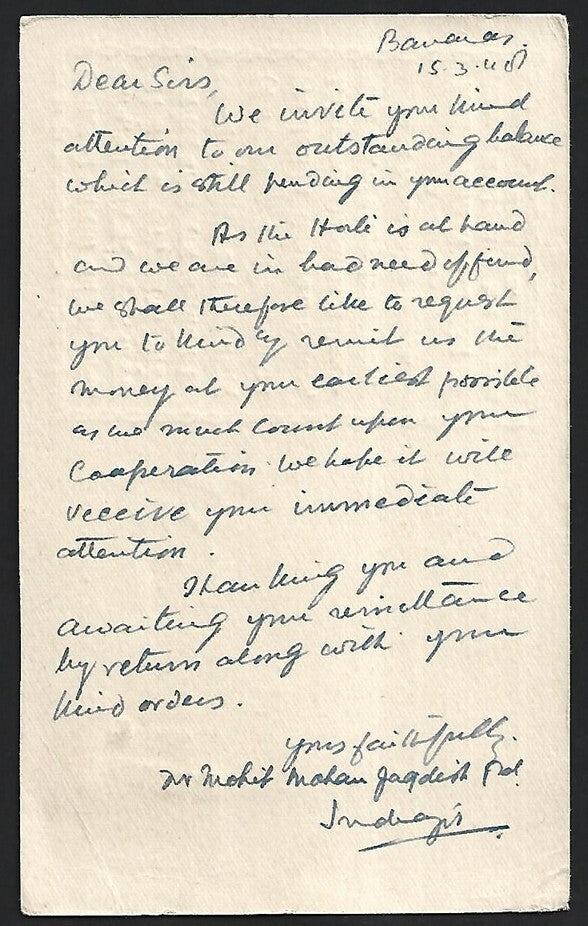 Banaras.
15.3.48
Dear Sirs,
We invite your kind
attention to our outstanding balance
which is still pending in your account.
As the Holi is at hand
and we are in bad need of fund,
we shall therefore like to request
you to kindly remit us the
money at your earliest possible
as we much count upon your
Cooperation. We hope it will
receive your immediate
attention.
Thanking you and
awaiting your remittance
by return along with your
kind orders.
yours faithfully.
Mohit Mohan Jagdish Pd.